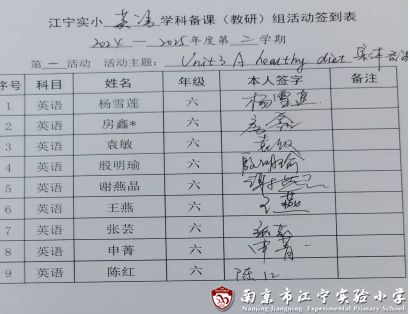 江宁实小 英语 学科备课（教研）组活动签到表
2024—2025年度第二学期
第一活动 活动主题：Unit 3 A healthy diet 集体备课
序号 科目 姓名 年级 本人签字 备注
1 英语 杨雪莲 六 杨雪莲
2 英语 房鑫* 六 房鑫
3 英语 袁敏 六 袁敏
4 英语 殷明瑜 六 殷明瑜
5 英语 谢燕晶 六
6 英语 王燕 六 王燕
7 英语 张芸 六 张芸
8 英语 申菁 六 申菁
9 英语 陈红 六 陈红
南京市江宁实验小学
Nanjing Jiangning Experimental Primary School